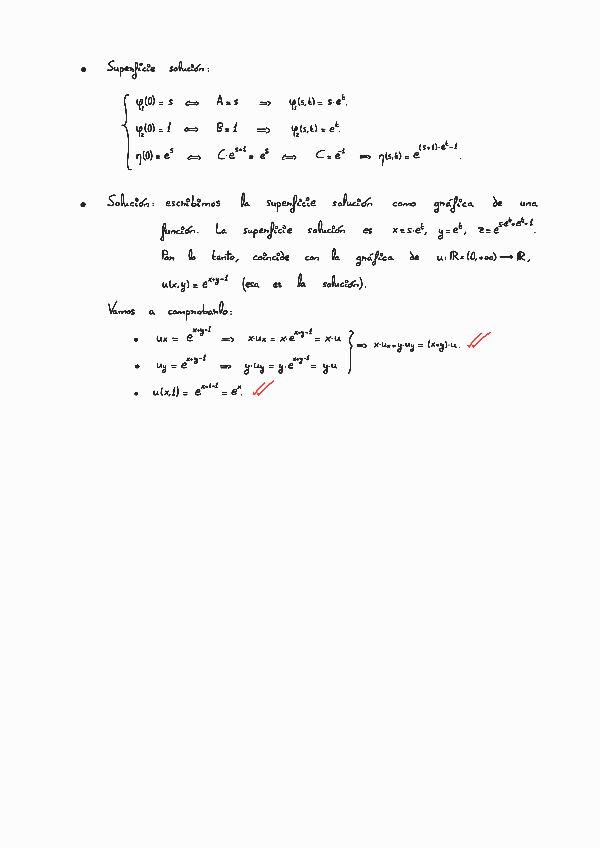 • Superficie solución:
φ₁(0) = s ⟺ A = s ⟹ φ₁(s,t) = s·e^t.
φ₂(0) = 1 ⟺ B = 1 ⟹ φ₂(s,t) = e^t.
η(0) = e^s ⟺ C·e^{s+1} = e^s ⟺ C = e^{-1} ⟹ η(s,t) = e^{(s+1)·e^t-1}.
• Solución: escribimos la superficie solución como gráfica de una
función. La superficie solución es x = s·e^t, y = e^t, z = e^{s·e^t+e^t-1}.
Por lo tanto, coincide con la gráfica de u: ℝ×(0,+∞) ⟶ ℝ,
u(x,y) = e^{x+y-1} (esa es la solución).
Vamos a comprobarlo:
• u_x = e^{x+y-1} ⟹ x·u_x = x·e^{x+y-1} = x·u
⟹ x·u_x + y·u_y = (x+y)·u.
• u_y = e^{x+y-1} ⟹ y·u_y = y·e^{x+y-1} = y·u
• u(x,1) = e^{x+1-1} = e^x.